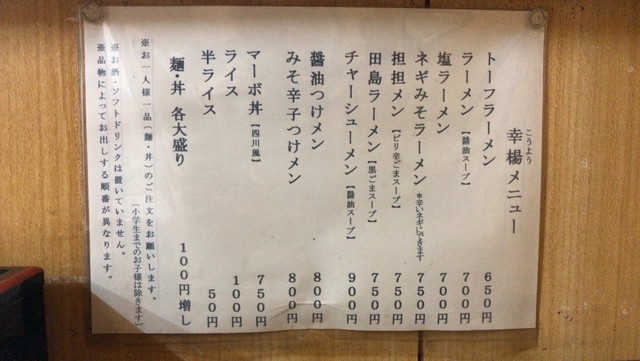 こうよう
幸楊メニュー
トーフラーメン 650円
ラーメン【醤油スープ】 700円
塩ラーメン 700円
ネギみそラーメン ＊辛いネギにできます 750円
担担メン【ピリ辛ごまスープ】 750円
田島ラーメン【黒ごまスープ】 750円
チャーシューメン【醤油スープ】 900円
醤油つけメン 800円
みそ辛子つけメン 800円
マーボ丼【四川風】 750円
ライス 100円
半ライス 50円
麺・丼 各大盛り 100円増し
※お一人様一品（麺・丼）のご注文をお願いします。
（小学生までのお子様は除きます）
※お酒・ソフトドリンクは置いていません。
※品物によってお出しする順番が異なります。